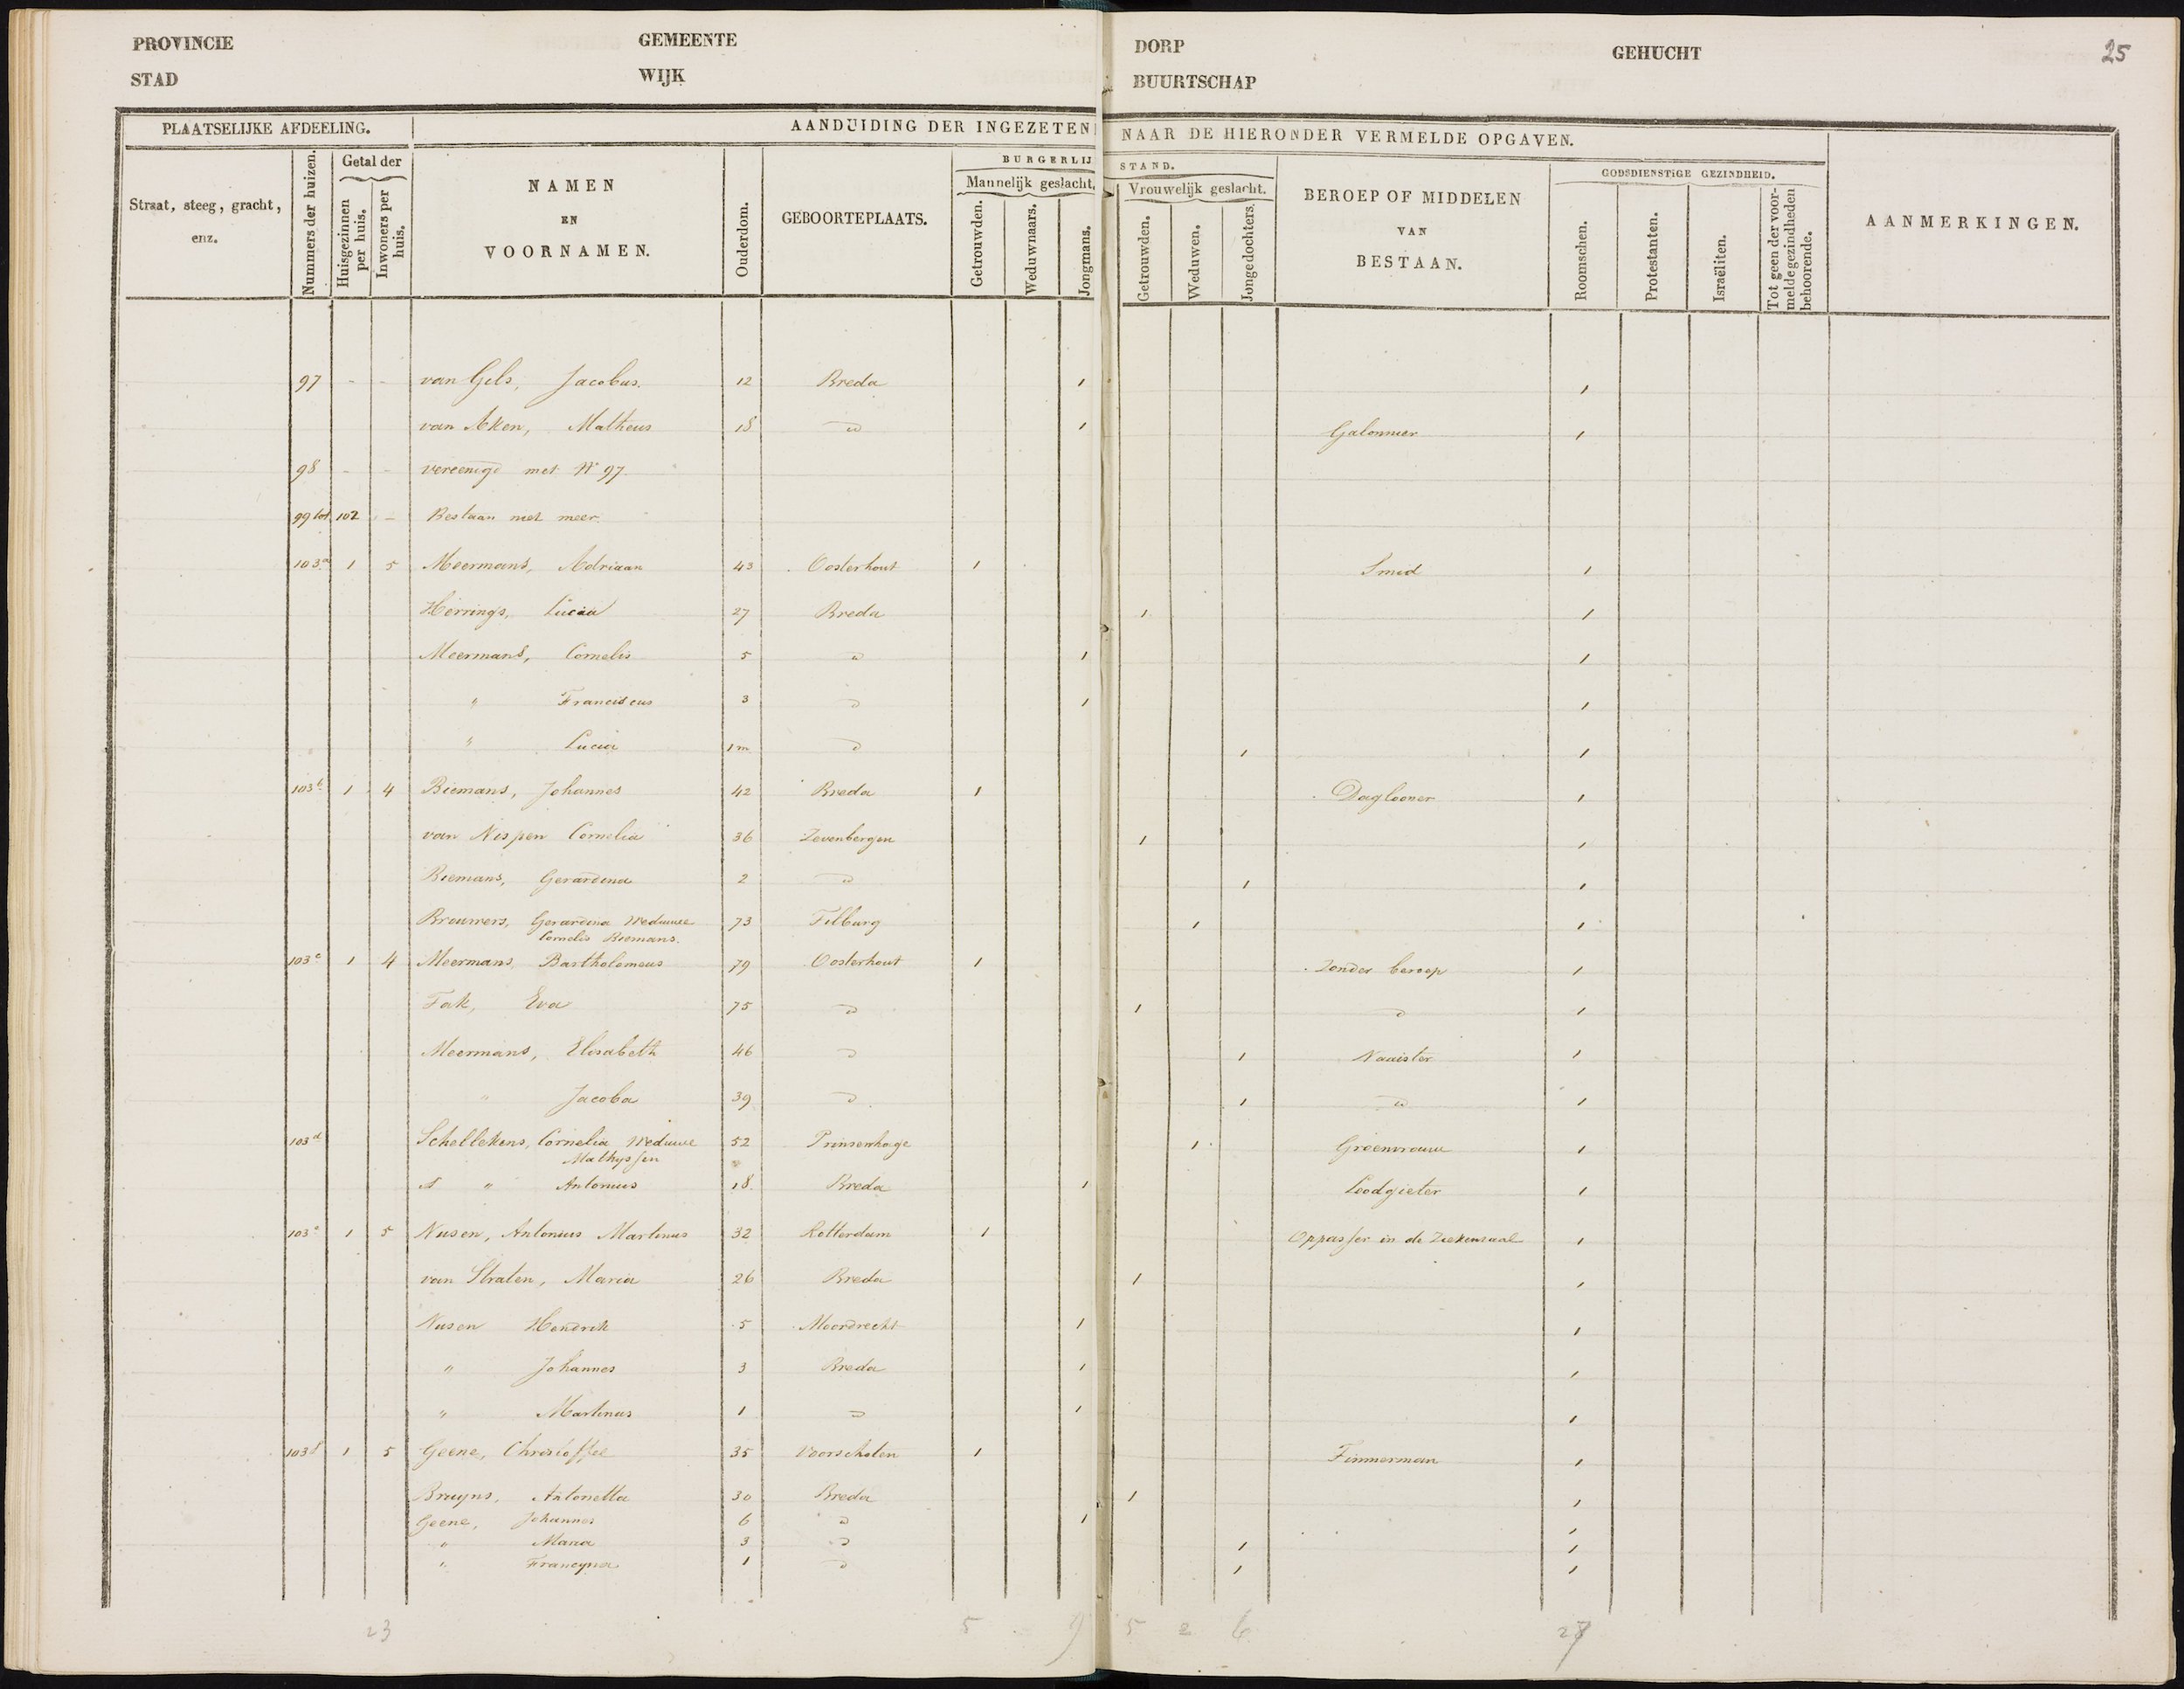 PROVINCIE GEMEENTE DORP GEHUCHT 25
STAD WIJK BUURTSCHAP
PLAATSELIJKE AFDEELING. AANDUIDING DER INGEZETEN NAAR DE HIERONDER VERMELDE OPGAVEN.
Straat, steeg, gracht, enz.
Nummers der huizen.
Getal der
Huisgezinnen per huis.
Inwoners per huis.
NAMEN
EN
VOORNAMEN.
Ouderdom.
GEBOORTEPLAATS.
BURGERLIJ STAND.
Mannelijk geslacht.
Getrouwden.
Weduwnaars.
Jongmans.
Vrouwelijk geslacht.
Getrouwden.
Weduwen.
Jongedochters.
BEROEP OF MIDDELEN
VAN
BESTAAN.
GODSDIENSTIGE GEZINDHEID.
Roomschen.
Protestanten.
Israëliten.
Tot geen der voormelde gezindheden behoorende.
AANMERKINGEN.
97 - - van Gils, Jacobus. 12 Breda 1 1
van Aken, Matheus 18 do 1 Galonnier 1
98 - - vereenigd met No 97.
99 tot 102 - Bestaan niet meer.
103a 1 5 Meermans, Adriaan 43 Oosterhout 1 Smid 1
Herrings, Lucia 27 Breda 1 1
Meermans, Cornelis 5 do 1 1
" Franciscus 3 do 1 1
" Lucia 1 m do 1 1
103b 1 4 Biemans, Johannes 42 Breda 1 Daglooner 1
van Nispen Cornelia 36 Zevenbergen 1 1
Biemans, Gerardina 2 do 1 1
Brouwers, Gerardina Weduwe 73 Tilburg 1 1
Cornelis Biemans.
103c 1 4 Meermans Bartholomeus 79 Oosterhout 1 Zonder beroep 1
Fak, Eva 75 do 1 do 1
Meermans, Elisabeth 46 do 1 Naaister 1
" Jacoba 39 do 1 do 1
103d Schellekens, Cornelia Weduwe 52 Prinsenhage 1 Groenvrouw 1
Mathyssen
" Antonius 18 Breda 1 Loodgieter 1
103e 1 5 Nusen, Antonius Martinus 32 Rotterdam 1 Oppasser in de Ziekenzaal 1
van Straten, Maria 26 Breda 1 1
Nusen Hendrik 5 Moordrecht 1 1
" Johannes 3 Breda 1 1
" Martinus 1 do 1 1
103f 1 5 Geene, Christoffel 35 Voorschoten 1 Timmerman 1
Bruyns, Antonetta 30 Breda 1 1
Geene, Johannes 6 do 1 1
" Maria 3 do 1 1
" Francyna 1 do 1 1
23 5 9 5 2 6 27